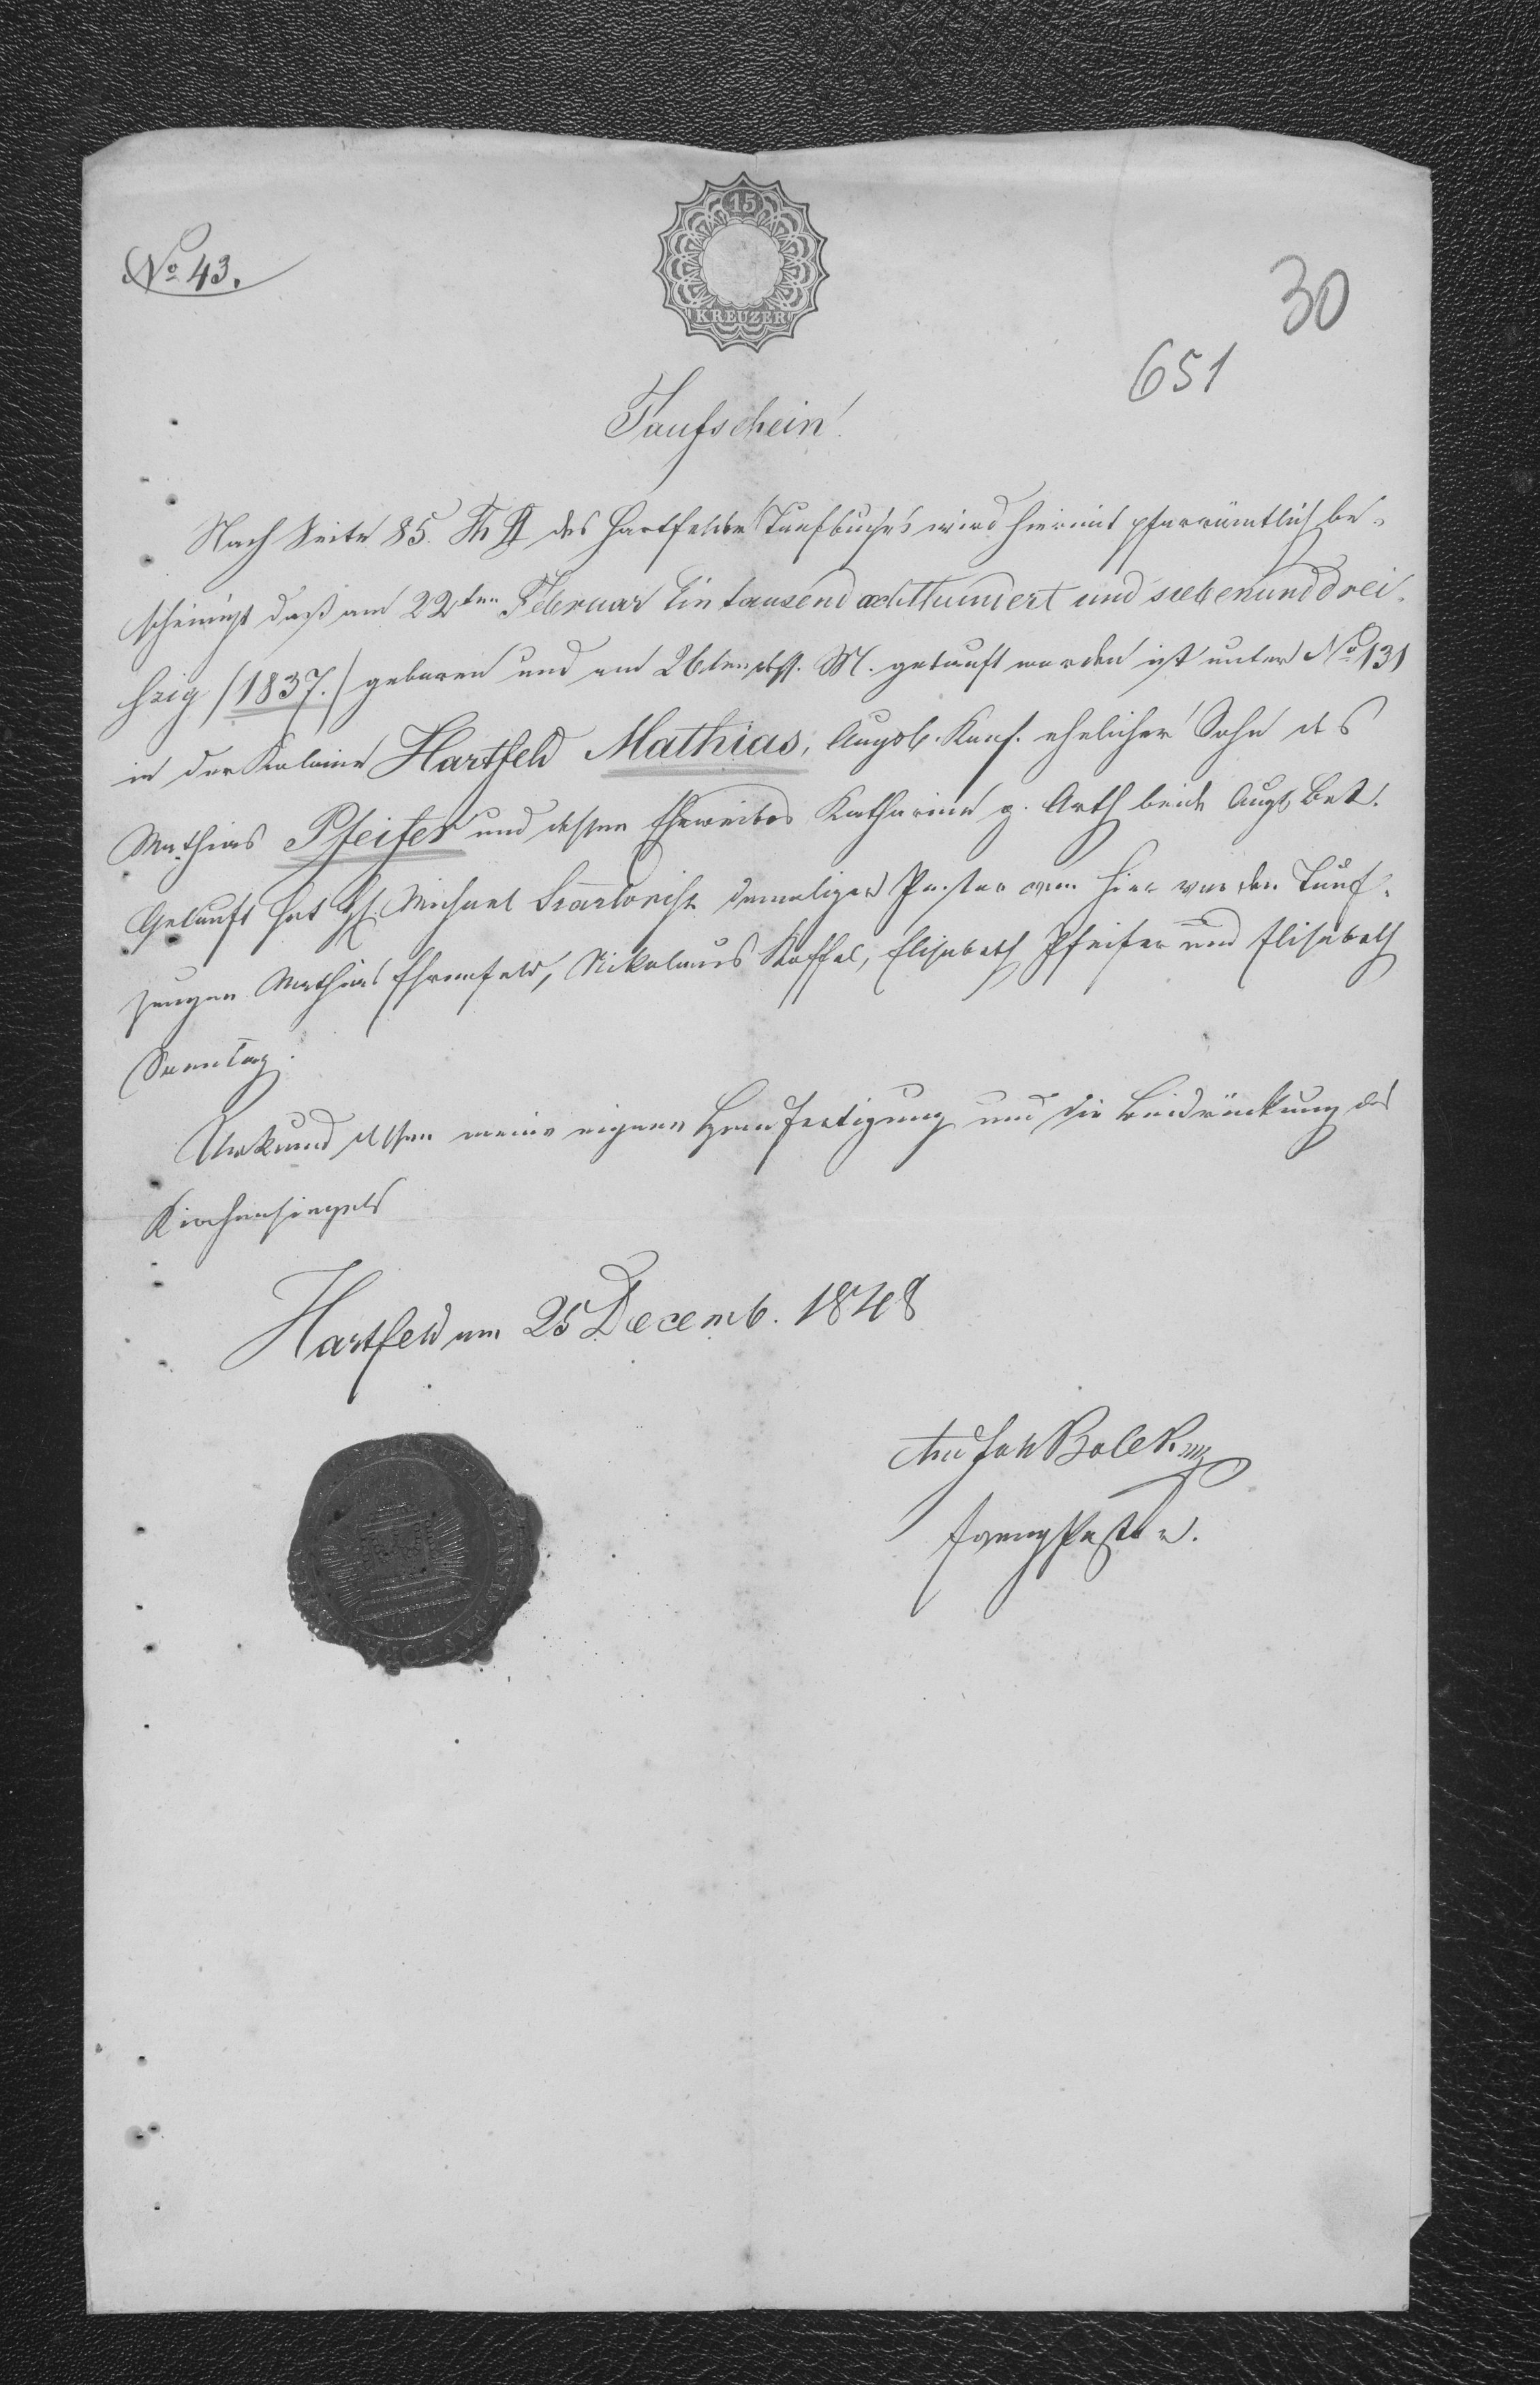 No 43.
15
KREUZER
30
651
Taufschein.
Nach Seite 85. des Hartfelder Taufbuches wird hiermit pfarrämtlich be-
scheinigt daß am 22ten Februar Ein tausend achthundert und siebenunddrei-
ßig /1837./ geboren und am 26ten M. getauft worden ist unter No 131
in der Kolonie Hartfeld Mathias, Augsb. Konf. ehelicher Sohn des
Mathias Pfeifer und dessen Eheweibes Katharina g. Orth beide Augsb. Bek.
Getauft hat H. Michael damaliger Pastor von hier waren Tauf-
zeugen Mathias Ehrenfeld, Nikolaus Koffel, Elisabeth Pfeifer und Elisabeth
Sonntag.
Urkund dessen meine eigene Handfertigung und die Beidrückung des
Kirchensiegels
Hartfeld am 25 Decemb. 1848
Bolek mp
Evang Pastor.